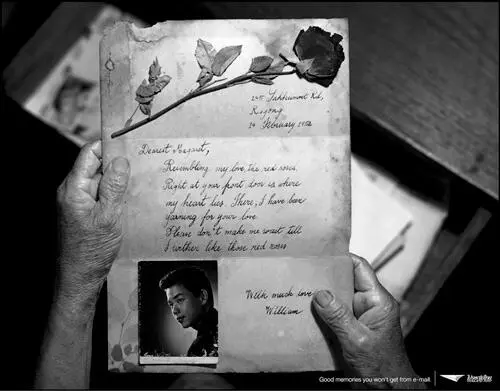 14 February 1952
Dearest Margaret,
Resembling my love, the red roses.
Right at your front door is where
my heart lies. There, I have been
yearning for your love.
Please don't make me wait till
I wither like those red roses
With much love
William
Good memories you won't get from e-mail.